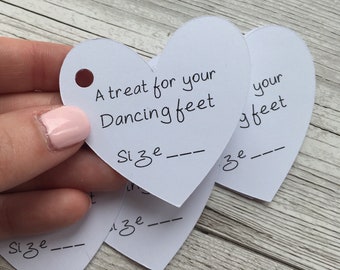 A treat for your
Dancing feet
Size ___
your
g feet
Size ___
Size ___
Size ___